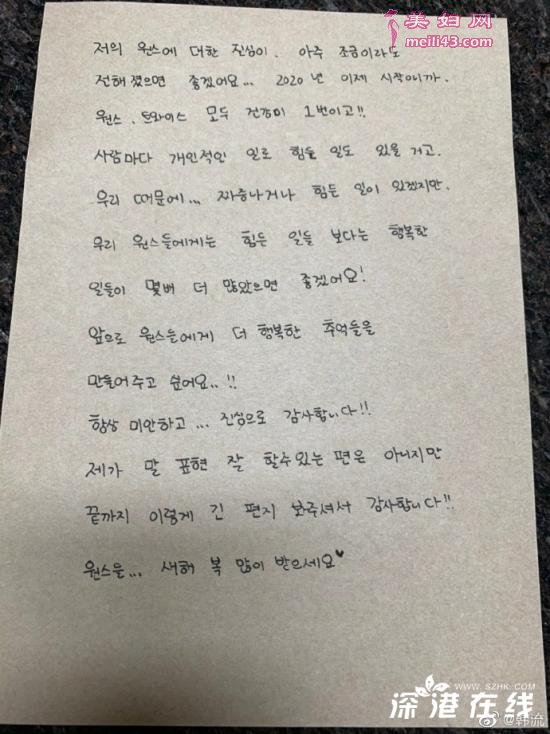 美妇网
meili43.com
저의 원스에 대한 진심이. 아주 조금이라도
전해 졌으면 좋겠어요... 2020년 이제 시작이니까.
원스. 트와이스 모두 건강이 1번이고!!
사람마다 개인적인 일로 힘들 일도 있을 거고.
우리 때문에... 짜증나거나 힘든 일이 있겠지만.
우리 원스들에게는 힘든 일들 보다는 행복한
일들이 몇배 더 많았으면 좋겠어요!
앞으로 원스들에게 더 행복한 추억들을
만들어주고 싶어요..!!
항상 미안하고... 진심으로 감사합니다!!
제가 말 표현 잘 할수있는 편은 아니지만
끝까지 이렇게 긴 편지 봐주셔서 감사합니다!!
원스들... 새해 복 많이 받으세요♥
WWW.SZHK.COM
深港在线
@韩流